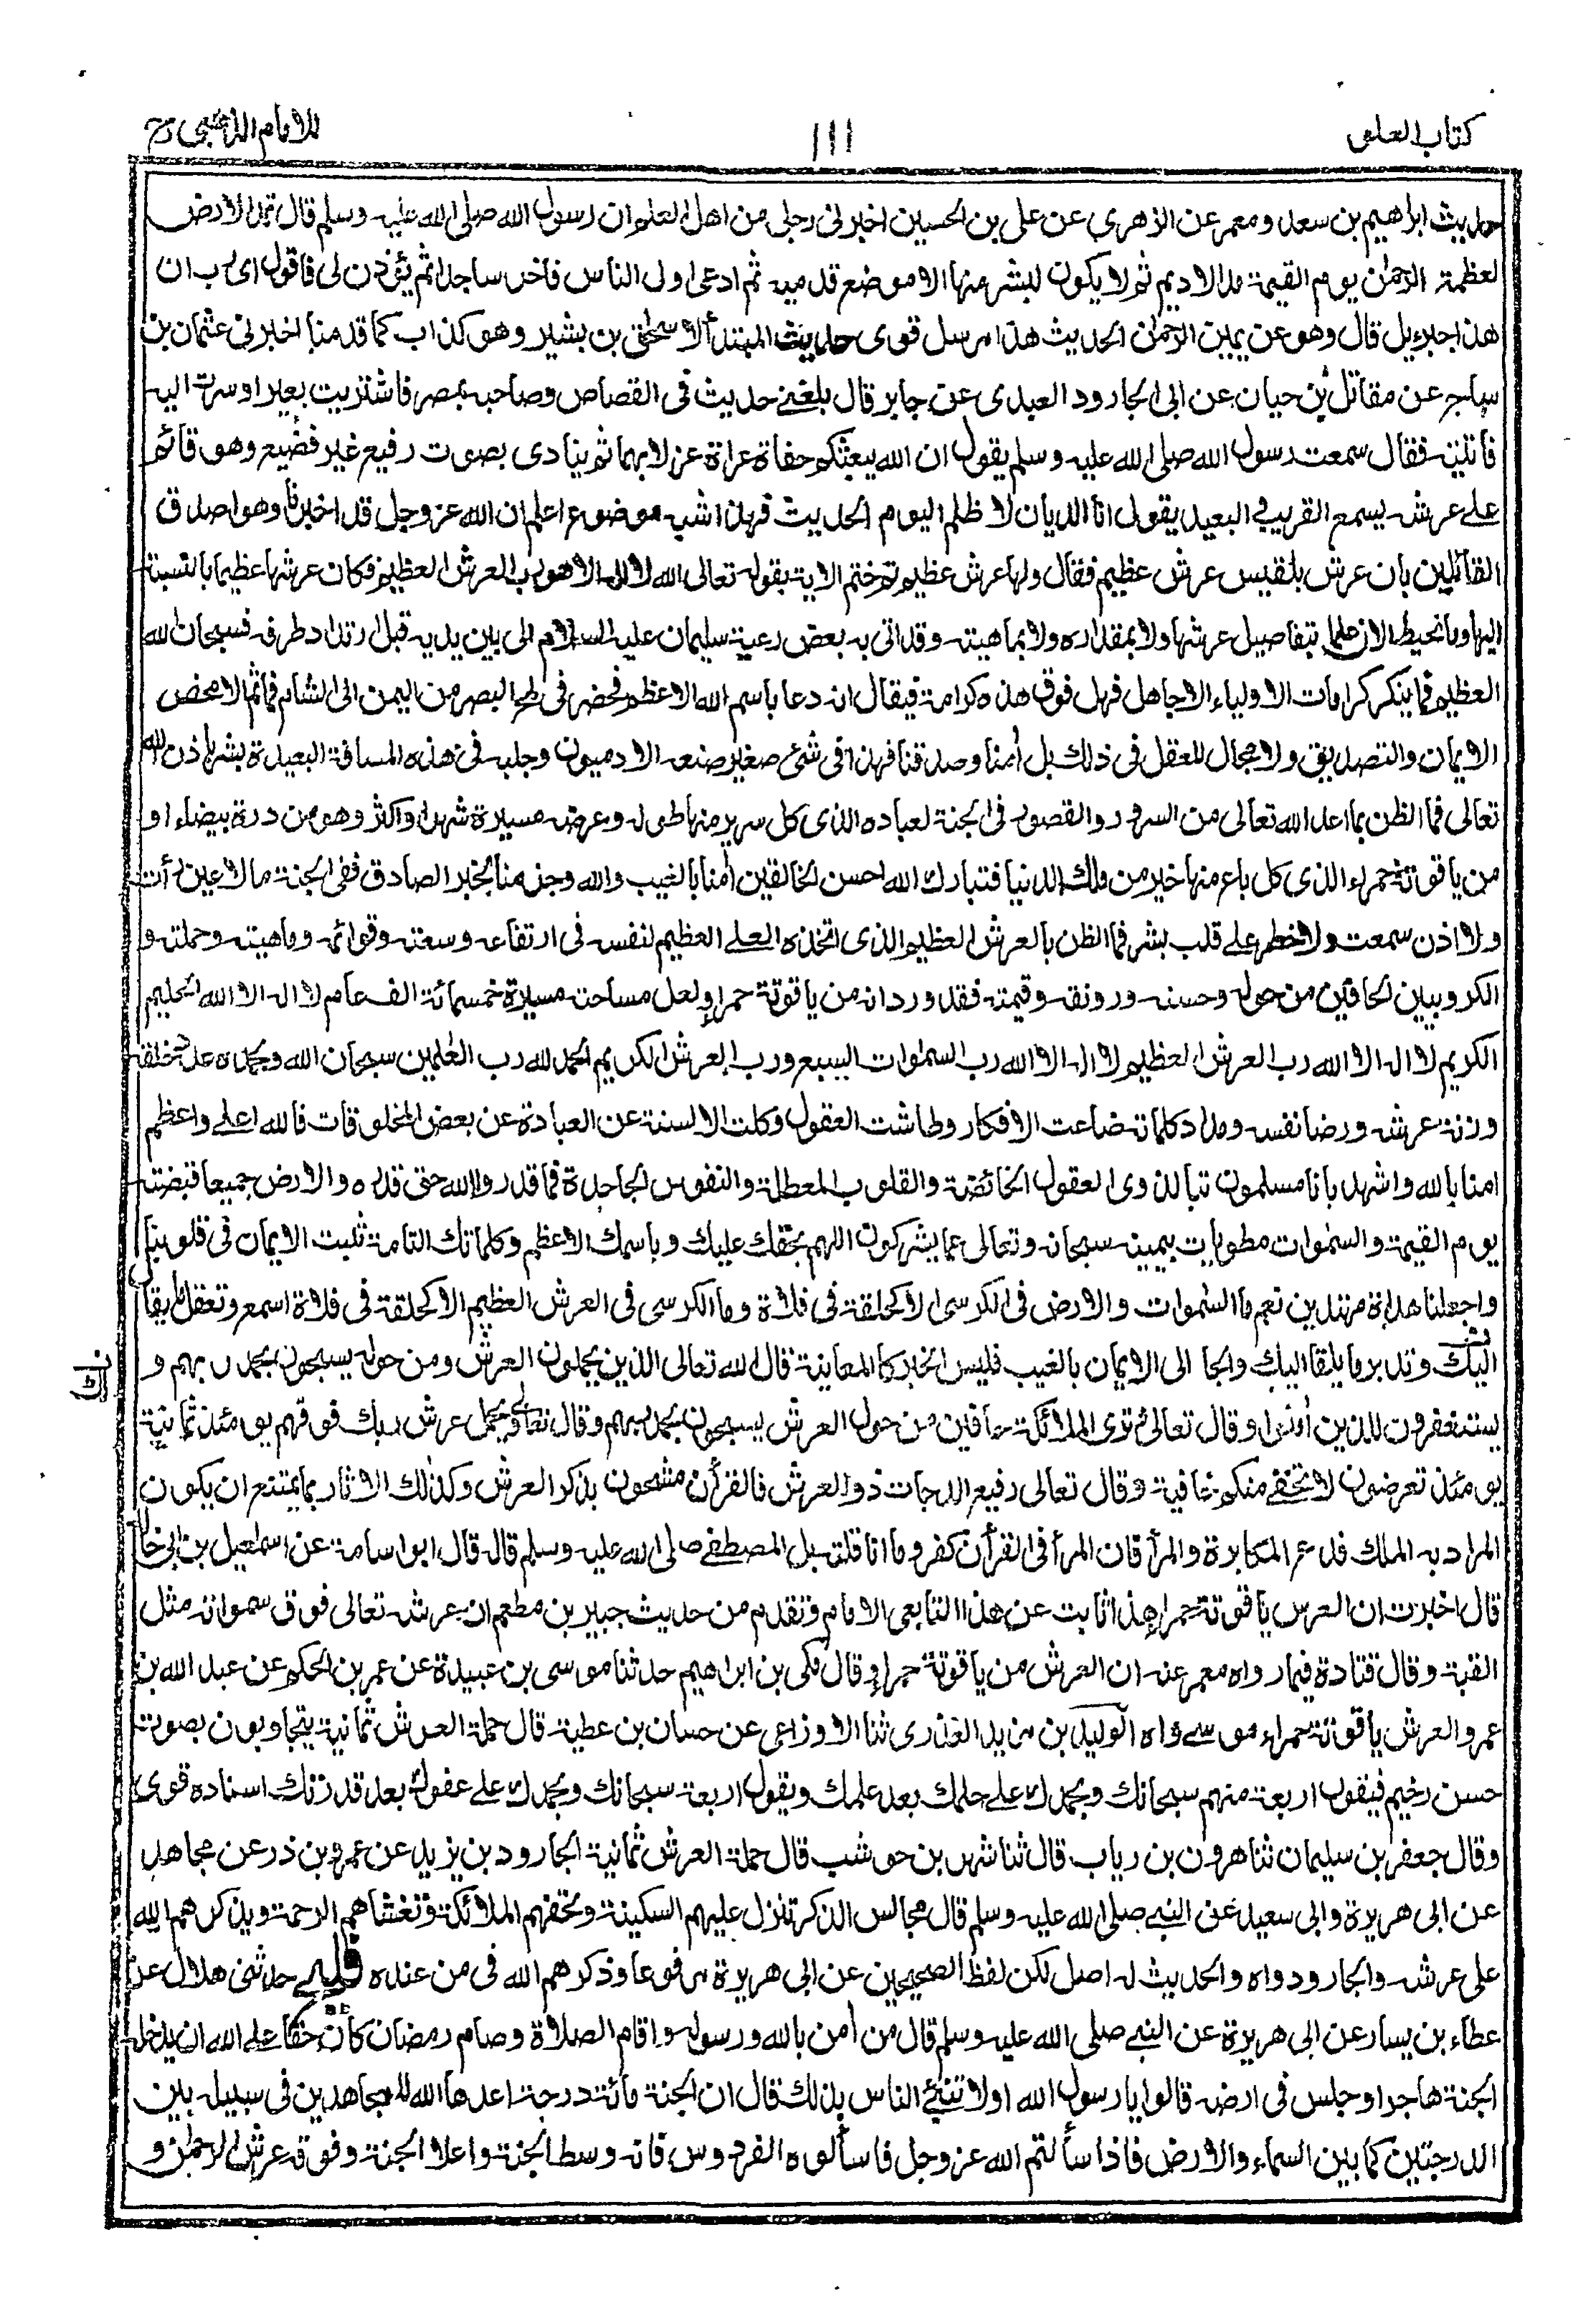 كتاب العلو
١١١
للامام الذهبي رح
حديث ابراهيم بن سعد ومعمر عن الزهري عن علي بن الحسين اخبرني رجل من اهل العلم ان رسول الله صلى الله عليه وسلم قال تمد الارض
لعظمة الرحمن يوم القيمة مد الاديم ثم لا يكون للبشر منها الا موضع قدميه ثم ادعى اول الناس فاخر ساجدا ثم يؤذن لي فاقول اى رب ان
هذا جبرءيل قال وهو عن يمين الرحمن الحديث هذا مرسل قوى حديث المبتدأ لاسحق بن بشير وهو كذاب كما قدمنا اخبرني عثمان بن
ساج عن مقاتل بن حيان عن ابى الجارود العبدى عن جابر قال بلغني حديث فى القصاص وصاحبه بمصر فاشتريت بعيرا وسرت اليه
فأتيته فقال سمعت رسول الله صلى الله عليه وسلم يقول ان الله يبعثكم حفاة عراة عزلا بهما ثم ينادى بصوت رفيع غير فضيع وهو قائم
على عرشه يسمع القريب البعيد يقول انا الديان لا ظلم اليوم الحديث فهذا شبه موضوع اعلم ان الله عز وجل قد اخبرنا وهو اصدق
القائلين بان عرش بلقيس عرش عظيم فقال ولها عرش عظيم ثم ختم الاية بقوله تعالى الله لا اله الا هو رب العرش العظيم فكان عرشها عظيما بالنسبة
اليها وما نحيط الان علما بتفاصيل عرشها ولا بمقداره ولا بماهيته وقد اتى به بعض رعية سليمان عليه السلام الى بين يديه قبل ارتداد طرفه فسبحان الله
العظيم فما ينكر كرامات الاولياء الا جاهل فهل فوق هذه كرامة فيقال انه دعا باسم الله الاعظم فحضر فى لمح البصر من اليمن الى الشام فما ثم الا محض
الايمان والتصديق ولا مجال للعقل فى ذلك بل أمنا وصدقنا فهذا فى شئ صغير صنعه الادميون وجلبه فى هذه المسافة البعيدة بشر باذن الله
تعالى فما الظن بما اعد الله تعالى من السرور والقصور فى الجنة لعباده الذى كل سرير منها طوله وعرضه مسيرة شهر او اكثر وهو من درة بيضاء او
من ياقوتة حمراء الذى كل باع منها خير من ملك الدنيا فتبارك الله احسن الخالقين أمنا بالغيب والله وجزمنا بخبر الصادق ففى الجنة ما لا عين رأت
ولا اذن سمعت ولا خطر على قلب بشر فما الظن بالعرش العظيم الذى اتخذه العلي العظيم لنفسه فى ارتفاعه وسعته وقوائمه وماهيته وحملته و
الكروبيين الحافين من حوله وحسنه ورونقه وقيمته فقد ورد انه من ياقوتة حمراء ولعل مساحته مسيرة خمسمائة الف عام لا اله الا الله الحليم
الكريم لا اله الا الله رب العرش العظيم لا اله الا الله رب السموات السبع ورب العرش الكريم الحمد لله رب العلمين سبحان الله وبحمده عدد خلقه
وزنة عرشه ورضا نفسه ومداد كلماته ضاعت الافكار وطاشت العقول وكلت الالسنة عن العبادة عن بعض المخلوقات فالله اعلى واعظم
امنا بالله واشهد بانا مسلمون تبا لذوى العقول الخائضة والقلوب المعطلة والنفوس الجاحدة فما قدروا الله حق قدره والارض جميعا قبضته
يوم القيمة والسموات مطويات بيمينه سبحانه وتعالى عما يشركون اللهم بحقك عليك وباسمك الاعظم وكلماتك التامة ثبت الايمان فى قلوبنا
واجعلنا هداة مهتدين نعم ما السموات والارض فى الكرسى الا كحلقة فى فلاة وما الكرسى فى العرش العظيم الا كحلقة فى فلاة اسمع وتعقل ما يقال
اليك وتدبر ما يلقا اليك والجا الى الايمان بالغيب فليس الخبر كالمعاينة قال الله تعالى الذين يحملون العرش ومن حوله يسبحون بحمد ربهم و
يستغفرون للذين أمنوا وقال تعالى وترى الملائكة حافين من حول العرش يسبحون بحمد ربهم وقال تعالى ويحمل عرش ربك فوقهم يومئذ ثمانية
يومئذ تعرضون لا تخفى منكم خافية وقال تعالى رفيع الدرجات ذو العرش فالقرأن مشحون بذكر العرش وكذلك الاثار بما يمتنع ان يكون
المراد به الملك فدع المكابرة والمرأ فان المرأ فى القرأن كفر وما انا قلته بل المصطفى صلى الله عليه وسلم قاله قال ابو اسامة عن اسمعيل بن ابى خالد
قال اخبرت ان العرش ياقوتة حمراء هذا ثابت عن هذا التابعى الامام وتقدم من حديث جبير بن مطعم ان عرشه تعالى فوق سمواته مثل
القبة وقال قتادة فيما رواه معمر عنه ان العرش من ياقوتة حمراء وقال مكى بن ابراهيم حدثنا موسى بن عبيدة عن عمر بن الحكم عن عبد الله بن
عمرو العرش ياقوتة حمراء موسى واه الوليد بن مزيد العذرى ثنا الاوزاعى عن حسان بن عطية قال حملة العرش ثمانية يتجاوبون بصوت
حسن رخيم فيقول اربعة منهم سبحانك وبحمدك على حلمك بعد علمك ويقول اربعة سبحانك وبحمدك على عفوك بعد قدرتك اسناده قوى
وقال جعفر بن سليمان ثنا هرون بن رياب قال ثنا شهر بن حوشب قال حملة العرش ثمانية الجارود بن يزيد عن عمرو بن ذر عن مجاهد
عن ابى هريرة وابى سعيد عن النبي صلى الله عليه وسلم قال مجالس الذكر تنزل عليهم السكينة وتحفهم الملائكة وتغشاهم الرحمة ويذكرهم الله
على عرشه والجارود واه والحديث له اصل لكن لفظ الصحيحين عن ابى هريرة مرفوعا وذكرهم الله فى من عنده فليح حدثنى هلال عن
عطاء بن يسار عن ابى هريرة عن النبي صلى الله عليه وسلم قال من أمن بالله ورسوله واقام الصلاة وصام رمضان كان حقا على الله ان يدخله
الجنة هاجر او جلس فى ارضه قالوا يا رسول الله اولا تنبئ الناس بذلك قال ان الجنة مائة درجة اعدها الله للمجاهدين فى سبيله بين
الدرجتين كما بين السماء والارض فاذا سألتم الله عز وجل فاسألوه الفردوس فانه وسط الجنة واعلا الجنة وفوقه عرش الرحمن و